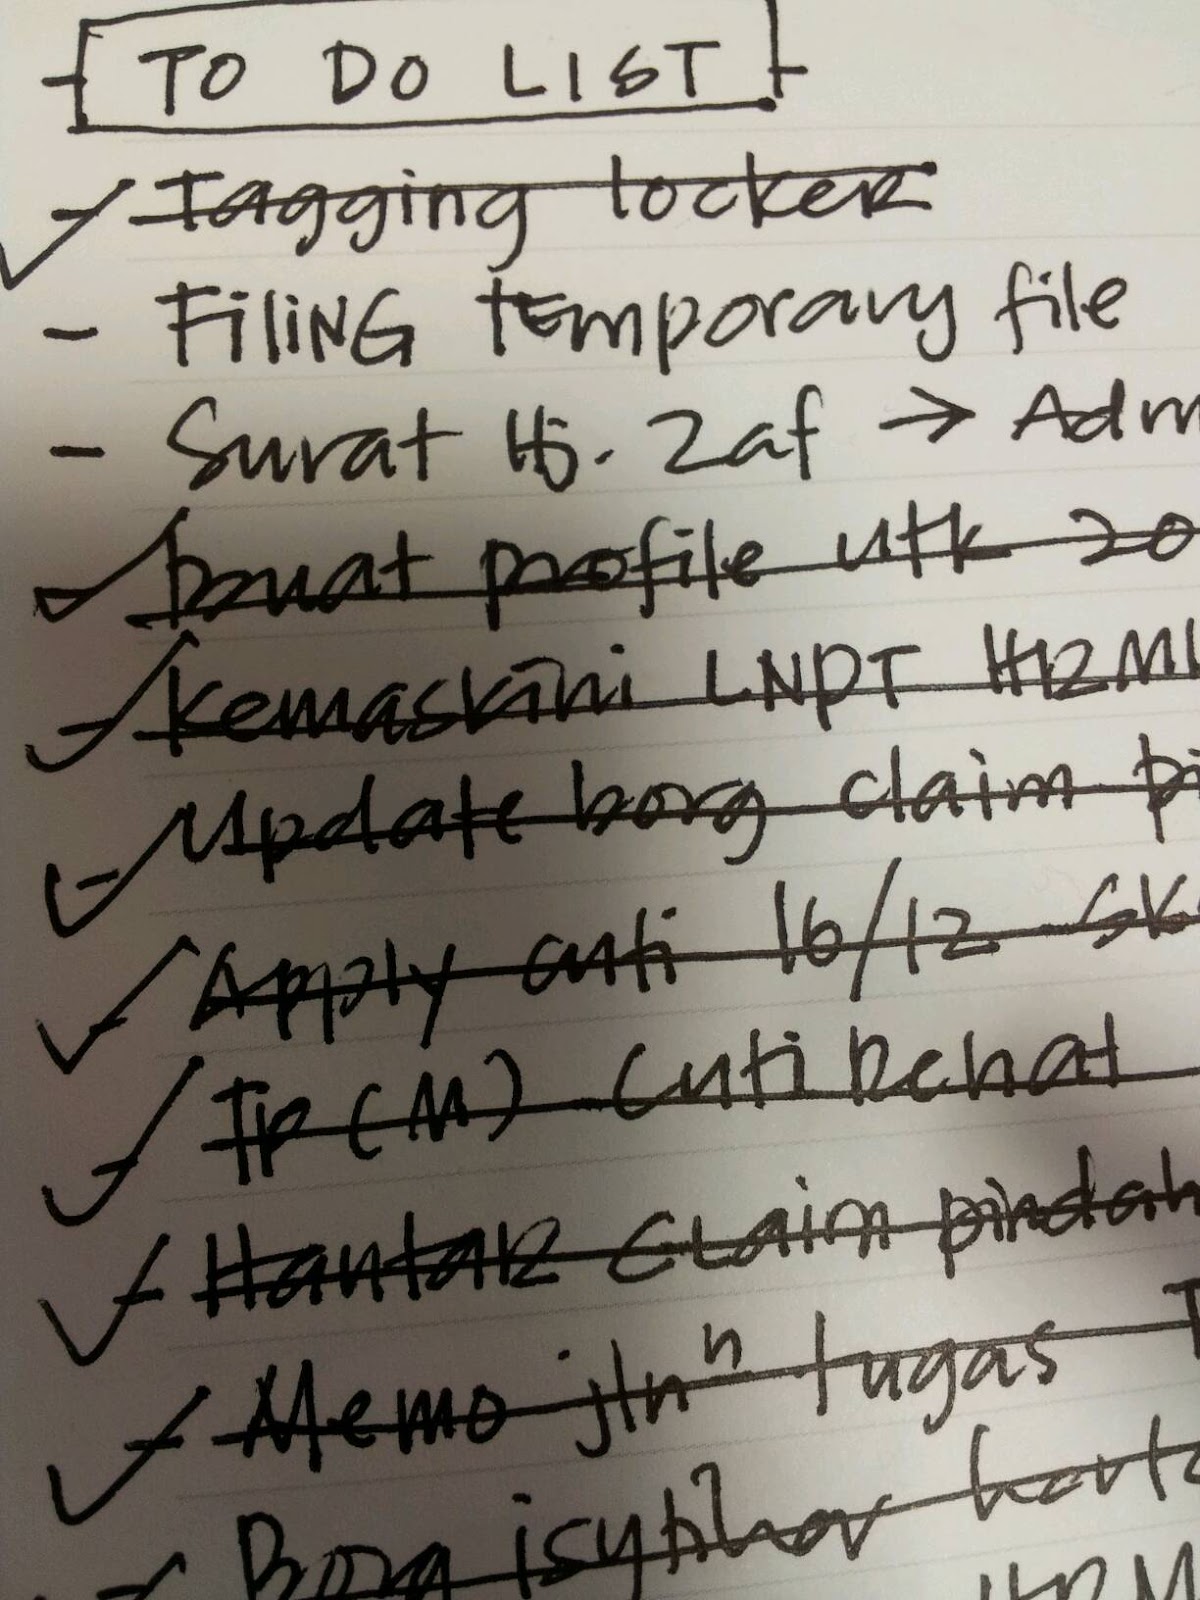 TO DO LIST
Tagging locker
- FiliNG temporary file
- Surat Hj. Zaf → Adm
- buat profile utk 20
- Kemaskini LNPT HRMI
- Update borg claim pi
- Apply cuti 16/12
- Tp (M) cuti rehat
- Hantar claim pindah
- Memo jlnⁿ tugas T
- Borg isytihar harta
HRM